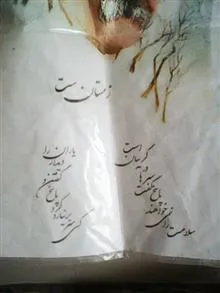 زمستان ست
سلامت را نمی خواهند پاسخ گفت سرها در گریبان است
کسی سر بر نیارد کرد پاسخ گفتن و دیدار یاران را